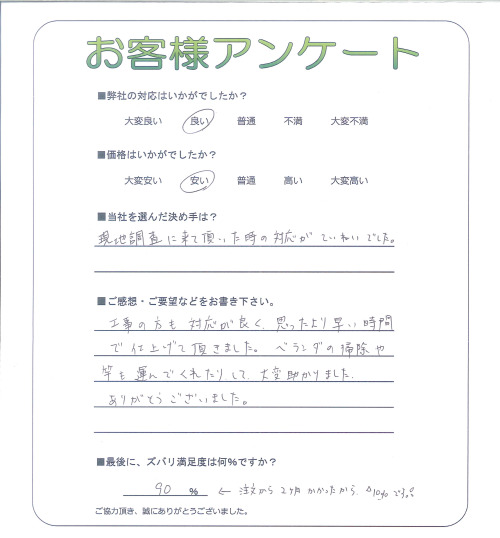 お客様アンケート
■弊社の対応はいかがでしたか?
大変良い 良い 普通 不満 大変不満
■価格はいかがでしたか?
大変安い 安い 普通 高い 大変高い
■当社を選んだ決め手は?
現地調査に来て頂いた時の対応がていねいでした。
■ご感想・ご要望などをお書き下さい。
工事の方も対応が良く、思ったより早い時間
で仕上げて頂きました。ベランダの掃除や
竿も運んでくれたりして、大変助かりました。
ありがとうございました。
■最後に、ズバリ満足度は何%ですか?
90 % ← 注文から2ヶ月かかったから、△10%です。
ご協力頂き、誠にありがとうございました。